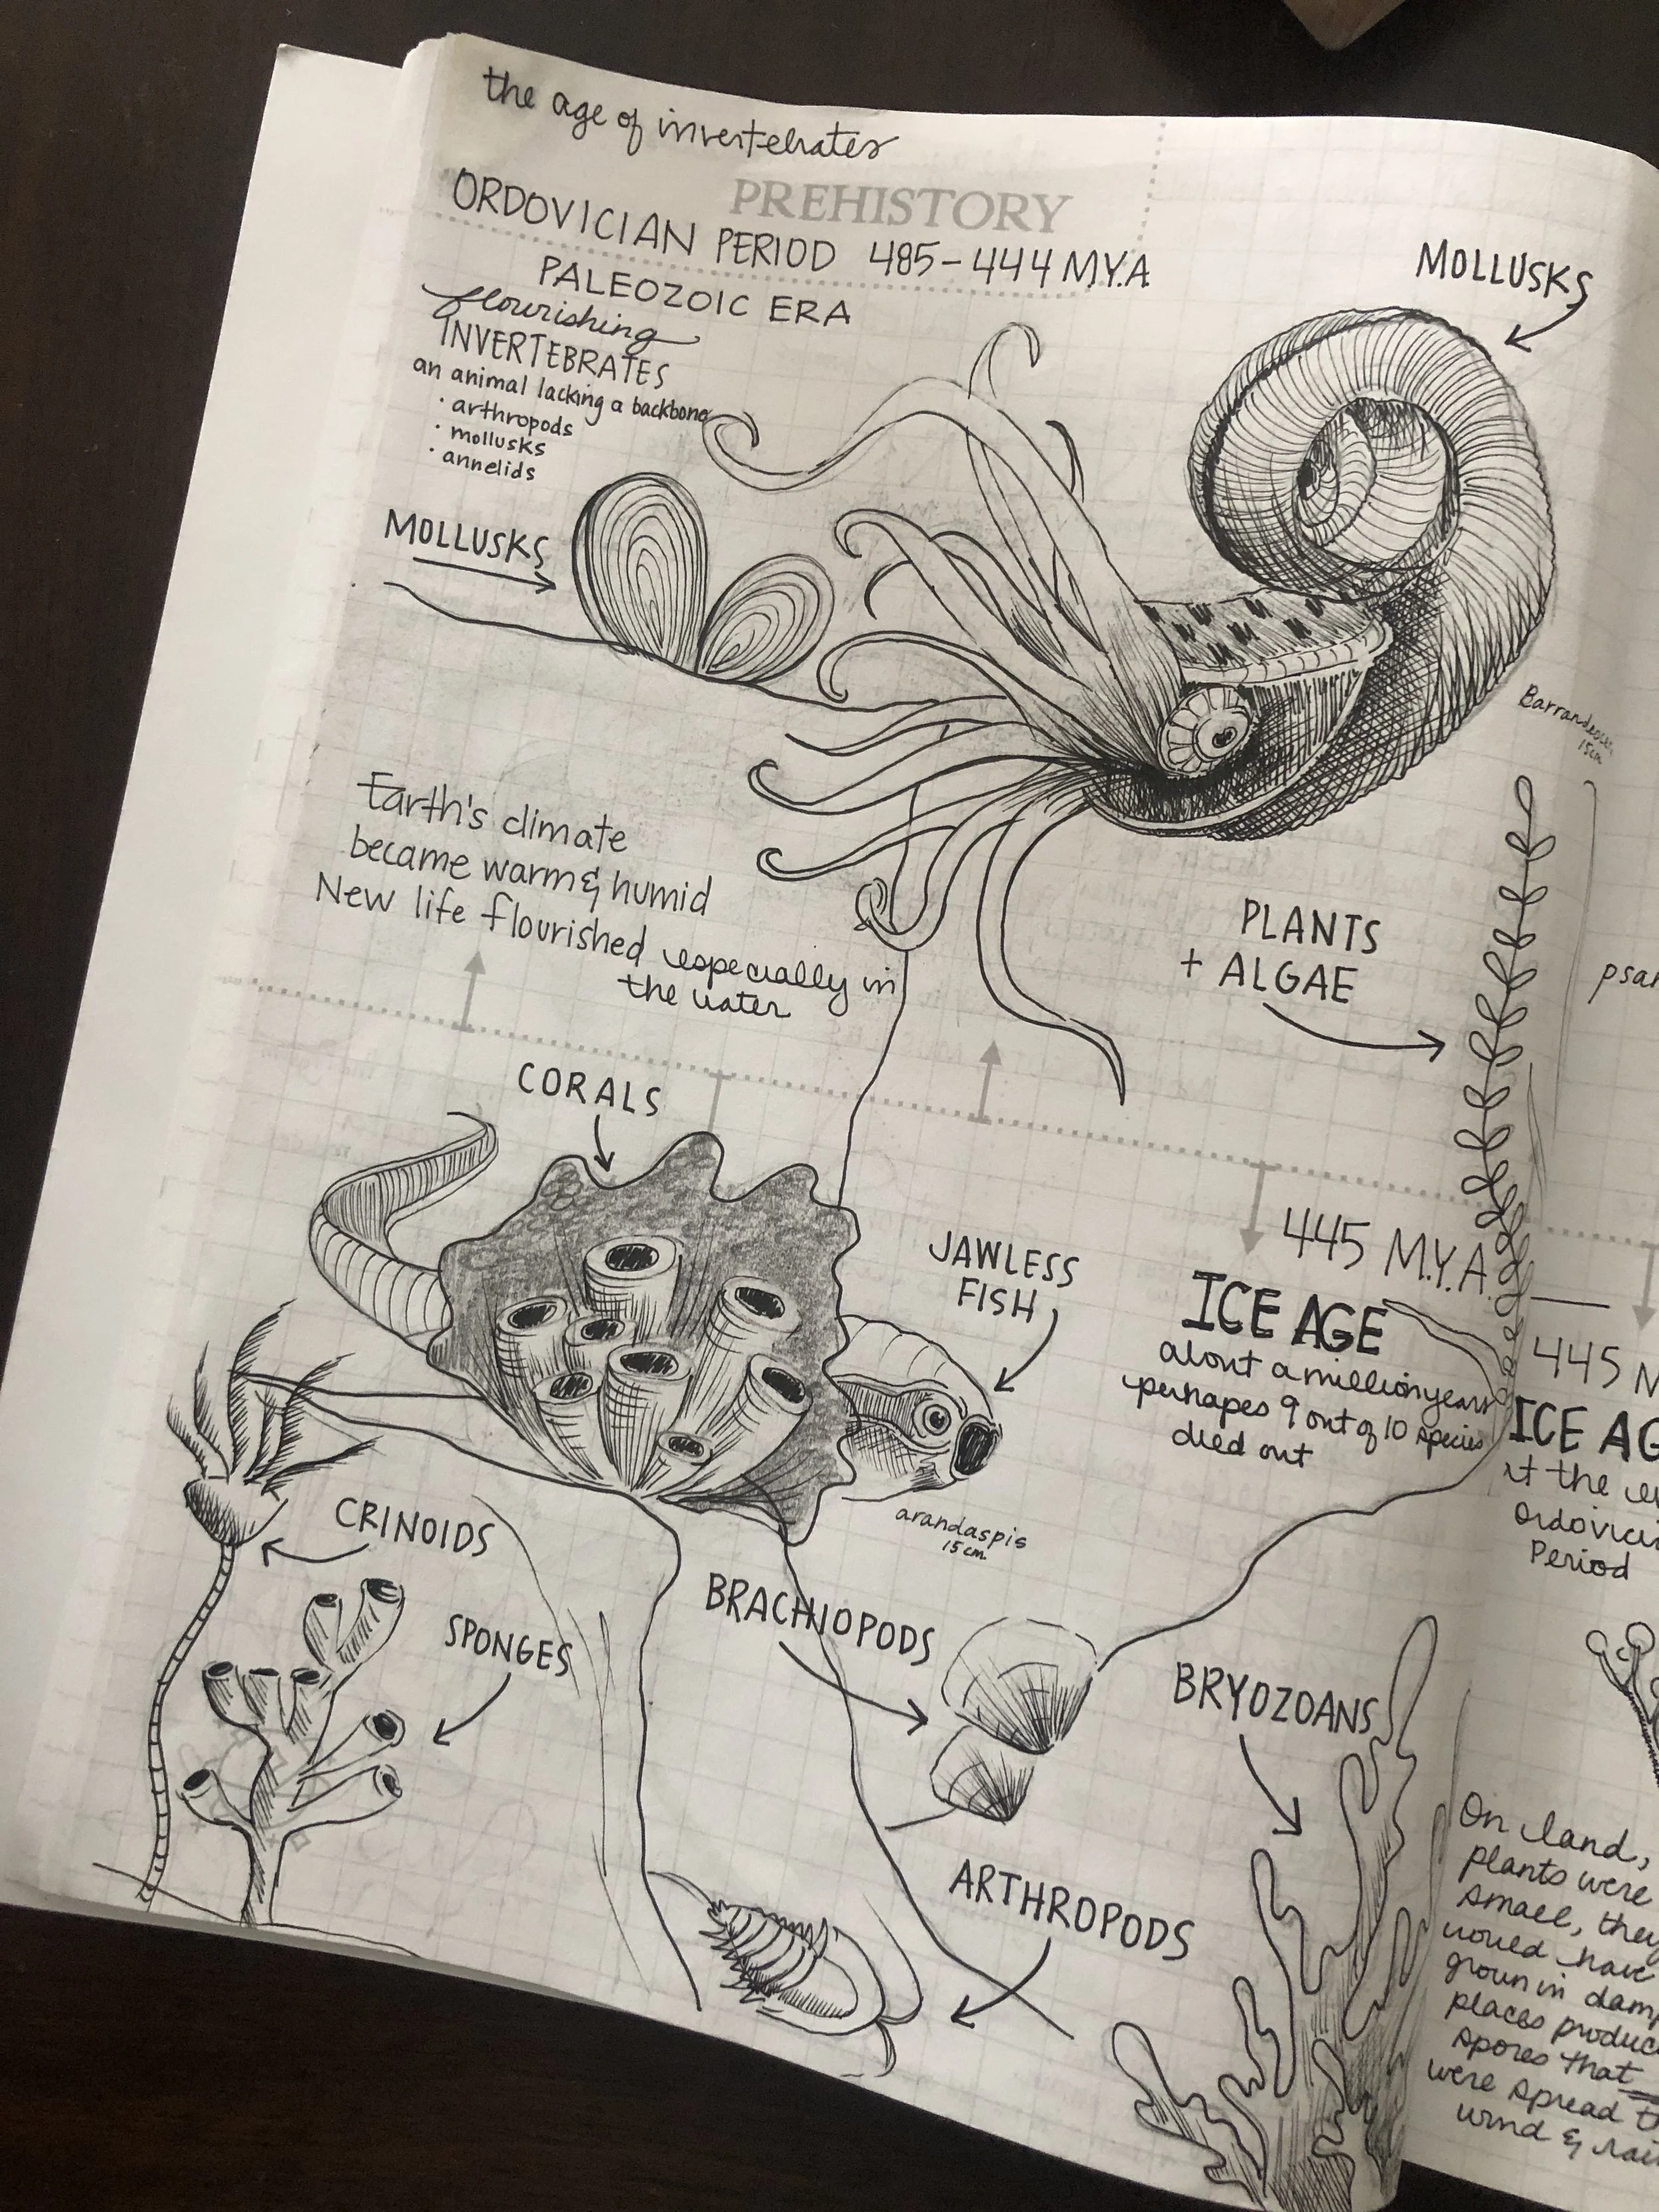 the age of invertebrates
PREHISTORY
ORDOVICIAN PERIOD 485-444 M.Y.A
PALEOZOIC ERA
flourishing
INVERTEBRATES
an animal lacking a backbone
· arthropods
· mollusks
· annelids
MOLLUSKS
MOLLUSKS
15cm
Earth's climate
became warm & humid
New life flourished especially in
the water
PLANTS
+ ALGAE
CORALS
JAWLESS
FISH
arandaspis
15cm
445 M.Y.A.
ICE AGE
about a million years
perhapes 9 out of 10 species
died out
445
ICE
the
Period
CRINOIDS
SPONGES
BRACHIOPODS
BRYOZOANS
ARTHROPODS
On land,
plants were
small, they
would have
grown in
places
spores that
were spread
wind &